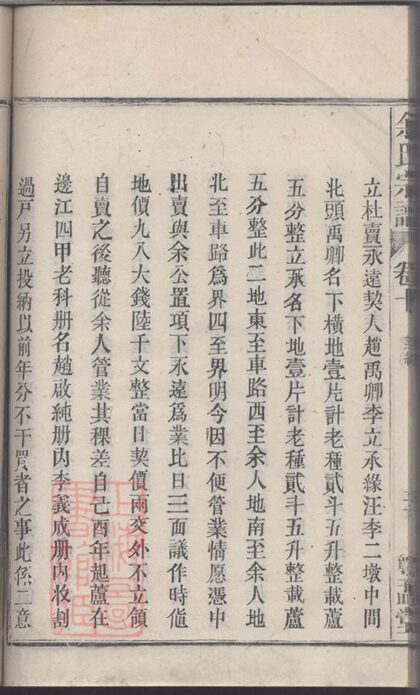 余氏宗譜
卷十
立杜賣永遠契人趙禹卿李立承緣汪李二墩中間
北頭禹卿名下橫地壹片計老種貳斗五升整載蘆
五分整立承名下地壹片計老種貳斗五升整載蘆
五分整此二地東至車路西至余人地南至余人地
北至車路爲界四至界明今因不便管業情愿憑中
出賣與余公置項下永遠爲業比日三面議作時値
地價九八大錢陸千文整當日契價兩交外不立領
自賣之後聽從余人管業其稞差自己酉年起蘆在
邊江四甲老科册名趙啟純册內李義成册內收割
過戶另立投納以前年分不干買者之事此係二意